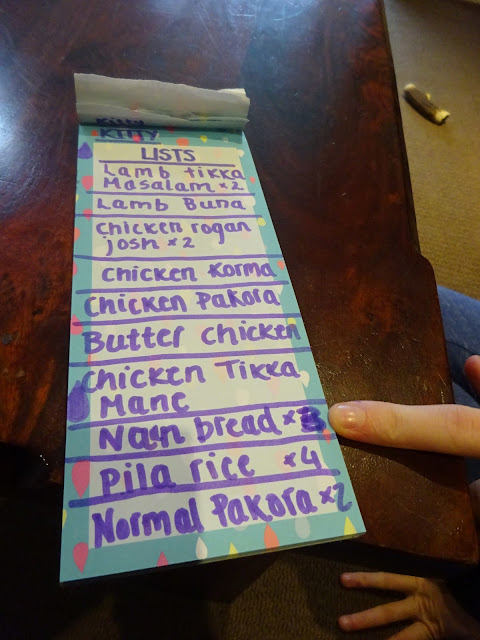 Kitty
KITTY
LISTS
Lamb tikka
Masalam x2
Lamb Buna
chicken rogan
josh x2
chicken korma
Chicken Pakora
Butter chicken
Chicken Tikka
Mane
Nan bread x
Pila rice x4
Normal Pakora x2